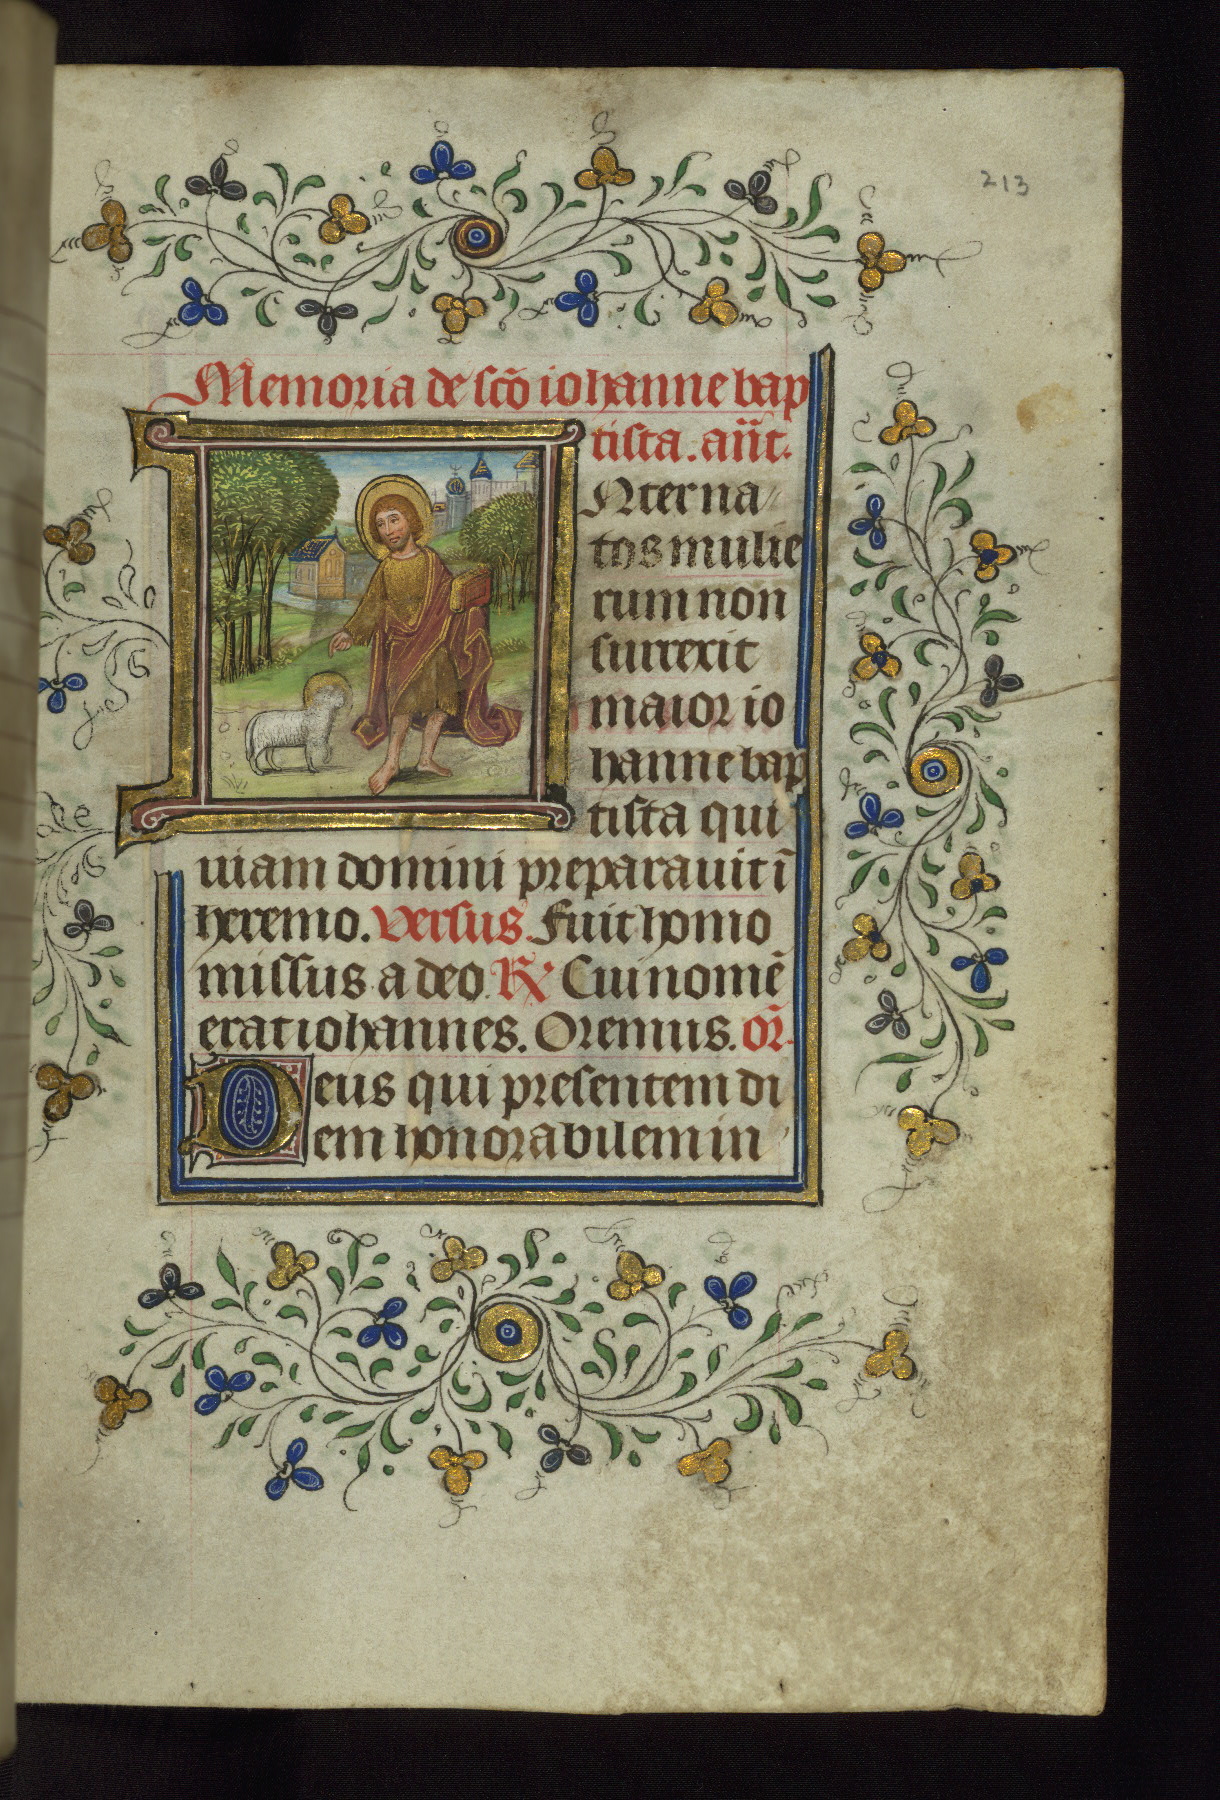 213
Memoria de scō iohanne bap
tista. an̄t.
Nterna
tos mulie
rum non
surrexit
maior io
hanne bap
tista qui
uiam domini preparauit ī
heremo. versus. Fuit homo
missus a deo. R̷ Cui nomē
erat iohannes. Oremus. or̄.
Deus qui presentem di
em honorabilem in